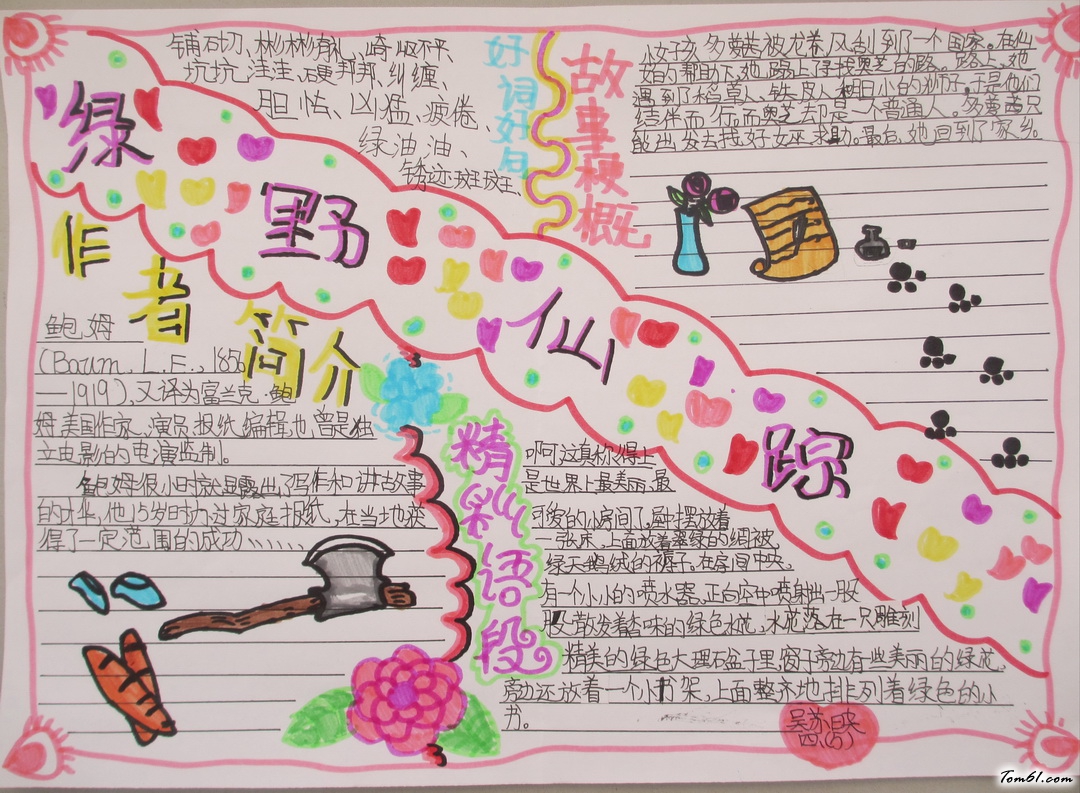 绿野仙踪
好词好句
铺砌、彬彬有礼、崎岖不平、
坑坑洼洼、硬邦邦、纠缠、
胆怯、凶猛、疲倦、
绿油油、
锈迹斑斑、
故事梗概
小女孩多萝茜被龙卷风刮到了一个国家。在仙
女的帮助下,她踏上了寻找奥芝的路。路上,她
遇到了稻草人、铁皮人和胆小的狮子。于是他们
结伴而行。而奥芝却是一个普通人。多萝茜只
能出发去找好女巫求助。最后,她回到了家乡。
作者简介
鲍姆
(Baum. L.F., 1856
—1919),又译为富兰克·鲍
姆美国作家、演员、报纸编辑也曾是独
立电影的电演监制。
鲍姆很小时就显露出了写作和讲故事
的才华,他15岁时办过家庭报纸,在当地获
得了一定范围的成功、、、、、、
精彩语段
啊!这真称得上
是世界上最美丽、最
可爱的小房间了,屋中摆放着
一张床,上面放着翠绿的绸被、
绿天鹅绒的褥子。在房间中央,
有一个小小的喷水器,正向空中喷射出一股
股散发着香味的绿色水花,水花落在一只雕刻
精美的绿色大理石盆子里,窗子旁边有些美丽的绿花,
旁边还放着一个小书架,上面整齐地排列着绿色的小
书。
吴苏映
四、(5)
Tom61.com